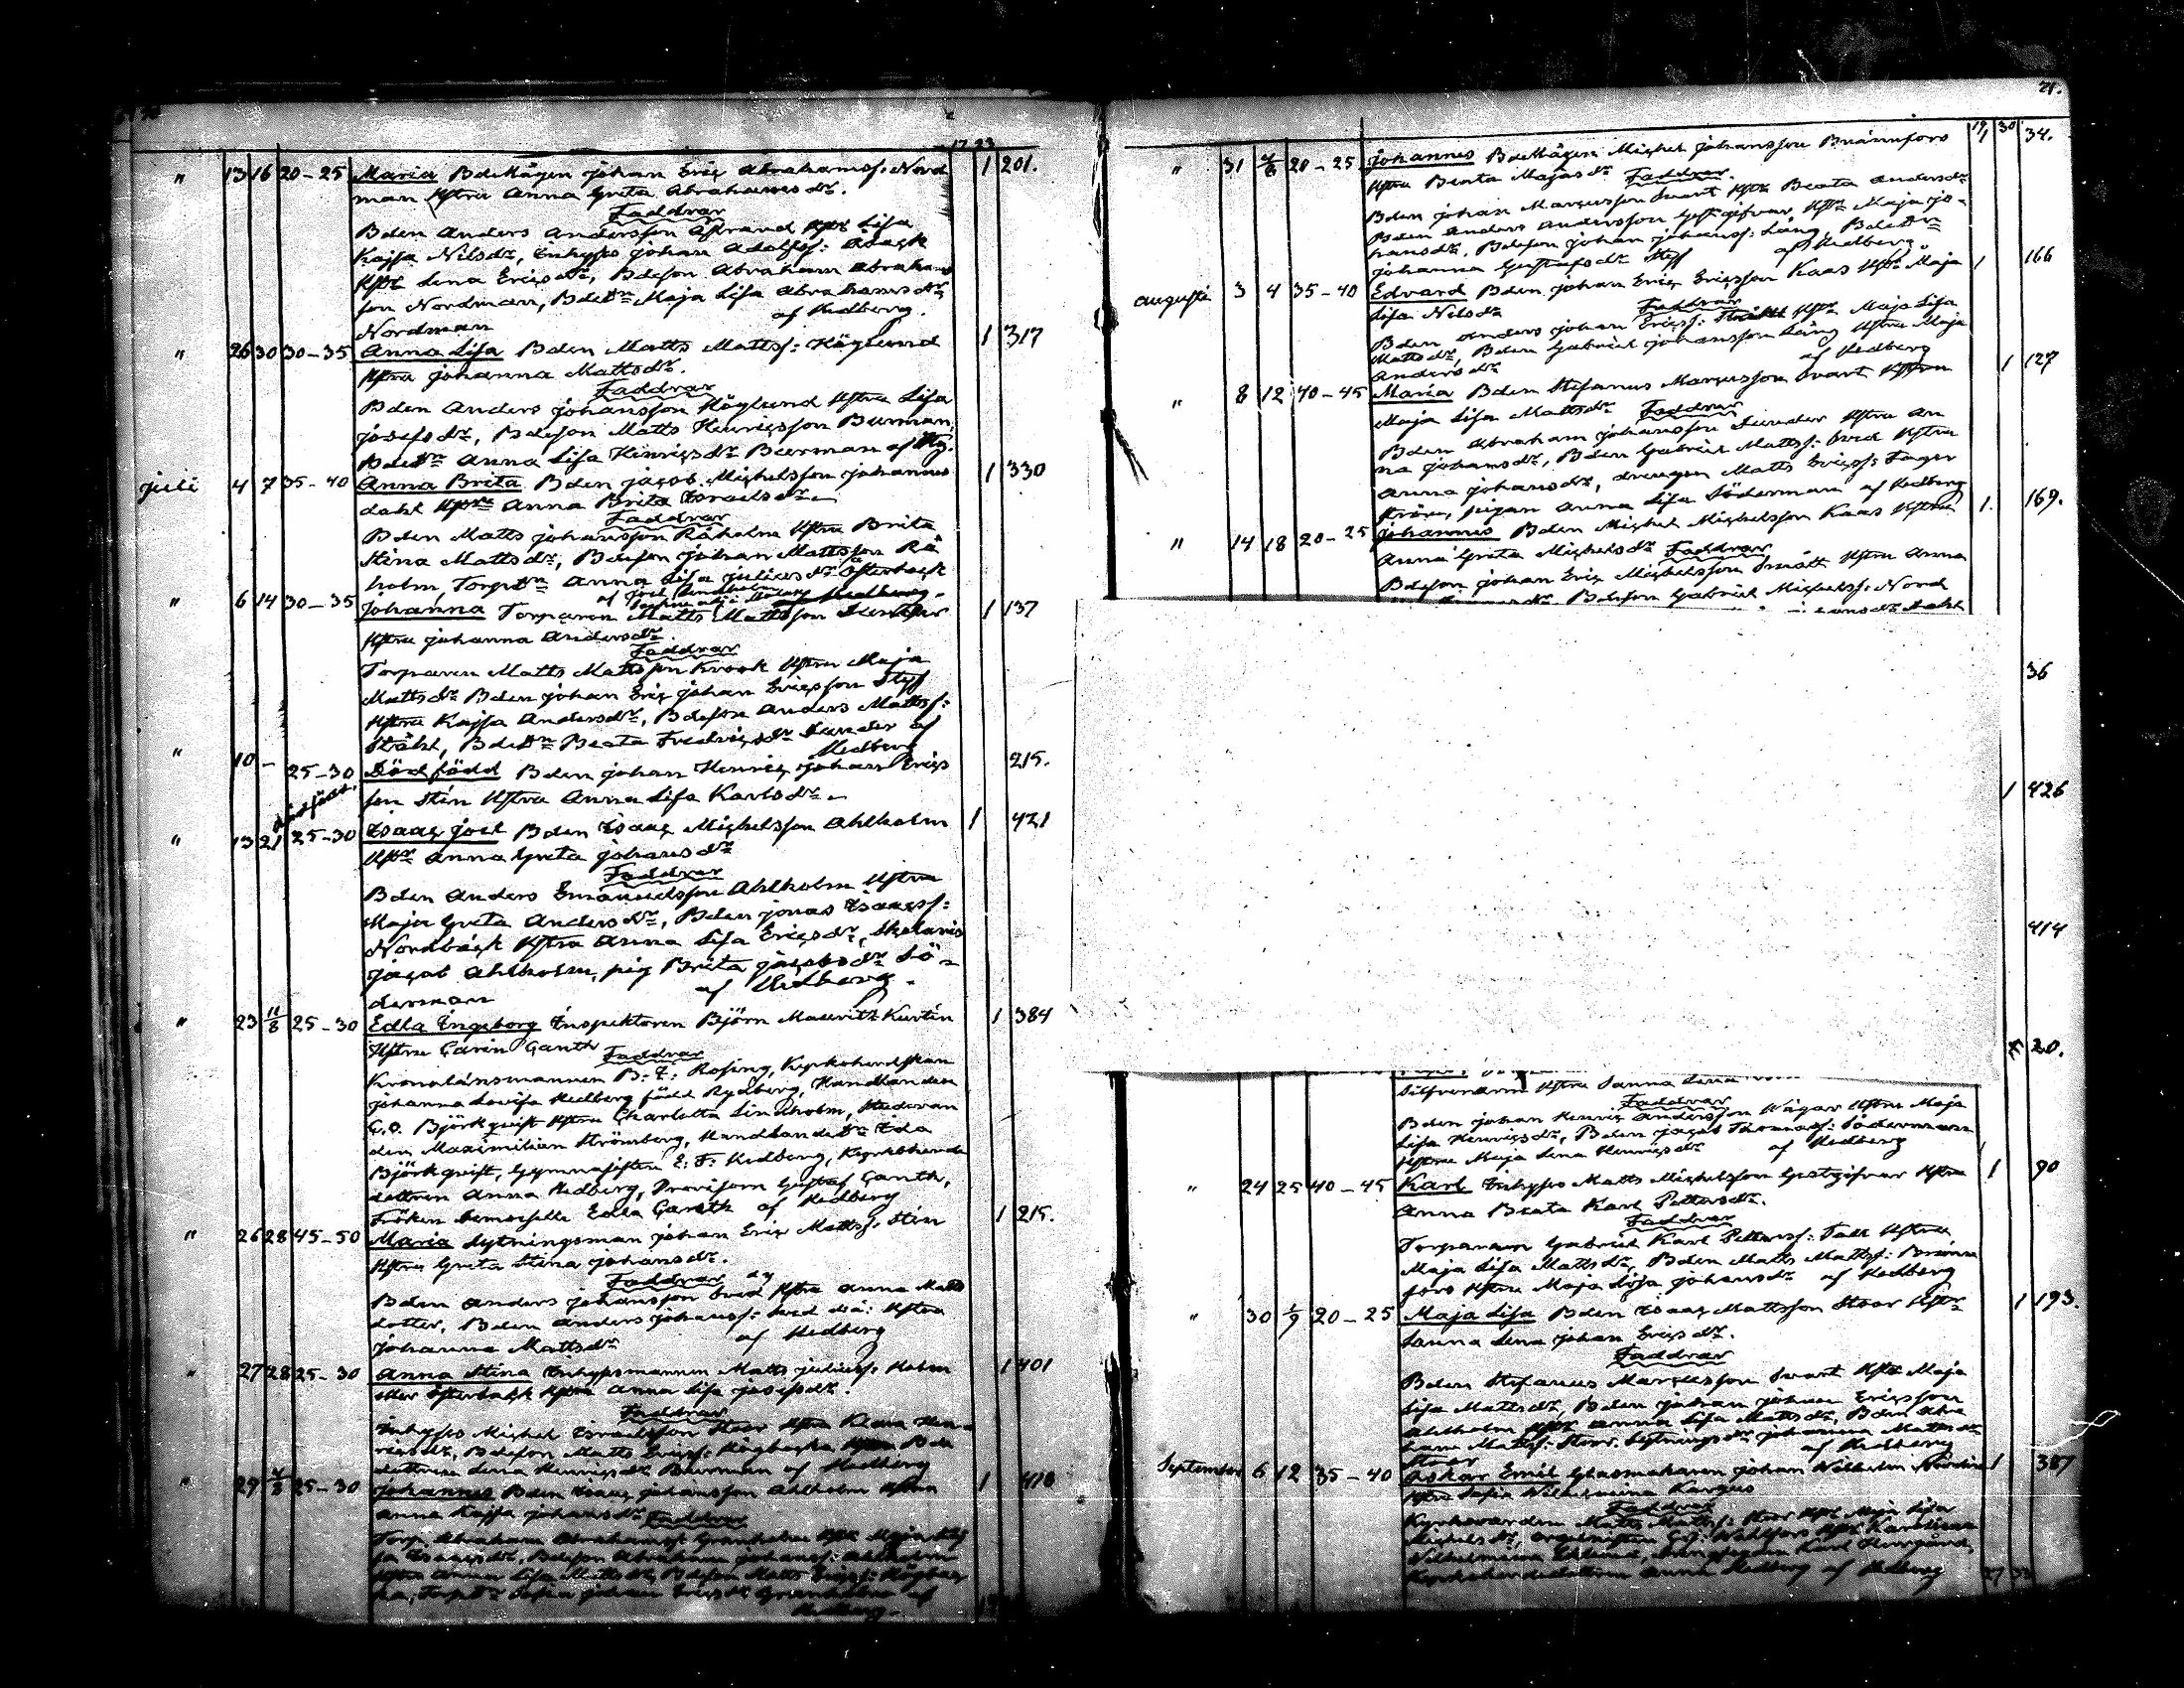 17 23
" 13 16 20-25 Maria Bdemågen Johan Eriq Abrahamss: Nord 1 201.
man Hstru Anna Greta Abrahamsdr.
Faddrar
Bden Anders Andersson Åstrand Hstr Lisa
Kajsa Nilsdr, Inhyses Johan Adolfss:
Hstr Lena Eriqsdr, Bdeson Abraham Abrahams
son Nordman, Bdedtr Maja Lisa Abrahamsdr
Nordman af Hedberg.
" 26 30 30-35 Anna Lisa Bden Matts Mattss: Höglund 1 317
Hstru Johanna Mattsdr.
Faddrar
Bden Anders Johansson Höglund Hstru Lisa
Josefsdr, Bdeson Matts Henriqsson Burman,
Bdedtr Anna Lisa Hinriqsdr Buurman af
Juli 4 7 35-40 Anna Brita Bden Jacob Mighelsson Johannes 1 330
dahl Hstru Anna Brita Israelsdr
Faddrar
Bden Matts Johansson Råholm Hstru Brita
Stina Mattsdr, Bdeson Johan Mattsson Rå
holm, Torpdtr Anna Lisa Juliusdr Österback
af Hedberg.
" 6 14 30-35 Johanna Torparen Matts Mattsson Dunder 1 137
Hstru Johanna Andersdr.
Faddrar
Torparen Matts Mattsson Krook Hstru Maja
Mattsdr Bden Johan Eriq Johan Eriqsson Styf
Hstru Kajsa Andersdr, Bdeson Anders Mattss:
Ståhl, Bdedtr Beata Fredriqsdr Dunder af
Hedberg
" 10 - 25-30 Dödfödd Bden Johan Henriq Johan Eriqs 215.
dödfödd. son Stén Hstru Anna Lisa Karlsdr.
" 13 21 25-30 Isaaq Joel Bden Isaaq Mighelsson Ahlholm 1 421
Hstr Anna Greta Johansdr
Faddrar
Bden Anders Emanuelsson Ahlholm Hstru
Maja Greta Andersdr, Bden Jonas Isaaqss:
Nordbäqk Hstru Anna Lisa Eriqsdr,
Jaqob Ahlholm, pig Brita Jaqobsdr Sö-
derman af Hedberg.
" 23 11/8 25-30 Edla Ingeborg Inspektoren Björn Mauritz Kurtén 1 384
Hstru Carin Ganth
Faddrar
Kronolänsmannen B: Z: Rosing, Kyrkoherdskan
Johanna Lovisa Hedberg född Rydberg, Handlanden
C.O. Björkqvist Hstru Charlotta Lindholm, Studeran
den Maximilian Strömberg, Handlandedtr Ida
Björkqvist, Gymnasisten E: F: Hedberg, Kyrkoherde
dottren Anna Hedberg, Provisorn Gustaf Ganth,
Fröken Edla Ganth af Hedberg
" 26 28 45-50 Maria Sytningsman Johan Eriq Mattss: Stén 1 215.
Hstru Greta Stina Johansdr.
Faddrar
Bden Anders Johansson Hstru Anna Matts
dotter, Bden Anders Johanss: Hstru
Johanna Mattsdr af Hedberg
" 27 28 25-30 Anna Stina Inhysesmannen Matts Juliuss: Holm 1 401
eller Österback Hstru Anna Lisa Josefsdr.
Faddrar
Inhyses Mighel Israelsson Stoor Hstru Klara Hen-
riqsdr, Bdeson Matts Eriqss: Högbacka Bde
dottren Lena Henriqsdr Buurman af Hedberg
" 29 4/8 25-30 Johannes Bden Isaaq Johansson Ahlholm Hstru 1 418
Anna Kajsa Johansdr Faddrar
Torp. Abraham Abrahamss: Granholm Hstr Maja
Isaaqsdr, Bdeson Abraham Johanss: Ahlholm
Hstru Anna Lisa Mattsdr, Bdeson Matts Eriqss: Högbac
ka, Torpdtr Sofia Johan Eriqsdr Granholm af
Hedberg.
21.
19/1 30 34.
" 31 4/8 20-25 Johannes Bdemågen Mighel Johansson Brännfors
Hstru Beata Majasdr Faddrar.
Bden Johan Marqusson Svart Hstr Beata Andersdr
Bden Anders Andersson Gestgifvar, Hstr Maja Jo-
hansdr, Bdeson Johan Johanss: Lång, Bdedtr
Johanna Gustafsdr Styf af Hedberg.
Augusti 3 4 35-40 Edvard Bden Johan Eriq Eriqsson Kaas Hstr Maja 1 166
Lisa Nilsdr Faddrar
Bden Anders Johan Eriqss: Hstr Maja Lisa
Mattsdr, Bden Gabriel Johansson Lång Hstru Maja
Andersdr af Hedberg
" 8 12 40-45 Maria Bden Stefanus Marqusson Svart Hstru 1 127
Maja Lisa Mattsdr Faddrar
Bden Abraham Johansson Dunder Hstru An
na Johansdr, Bden Gabriel Mattss: Hstru
Anna Johansdr, drengen Matts Eriqss: Fager
ström, pigan Anna Lisa Söderman af Hedberg
" 14 18 20-25 Johannes Bden Mighel Mighelsson Kaas Hstru 1. 169.
Anna Greta Mighelsdr Faddrar
Bdeson Johan Eriq Mighelsson Smått Hstru Anna
Bdeson Gabriel Mighelss: Nord
36
1 426
414
20.
Silfverdrm Hstru Sanna Lena
Faddrar
Bden Johan Henriq Andersson Wägar Hstru Maja
Lisa Henriqsdr, Bden Jaqob Thomass: Söderman
Hstru Maja Lena Henriqsdr af Hedberg
" 24 25 40-45 Karl Inhyses Matts Mighelsson Gestgifvar Hstru 1 90
Anna Beata Karl Pettersdr.
Faddrar
Torparen Gabriel Karl Petterss: Tall Hstru
Maja Lisa Mattsdr, Bden Matts Mattss: Bränn
fors Hstru Maja Lisa Johansdr af Hedberg
" 30 1/9 20-25 Maja Lisa Bden Isaaq Mattsson Stoor Hstr 1 193.
Sanna Lena Johan Eriqsdr.
Faddrar
Bden Stefanus Marqusson Svart Hstr Maja
Lisa Mattsdr, Bden Johan Johan Eriqsson
Ahlholm Hstr Anna Lisa Mattsdr, Bden Abra
ham Mattss: Stoor. Sytningsdr Johanna Mattsdr
Stoor af Hedberg
September 6 12 35-40 Oskar Emil Glasmakaren Johan Wilhelm 1 387
Hstru Sofia Wilhelmina Kargus
Faddrar
Kyrkovärden Matts Mattss: Stoor Hstr Maja Lisa
Mighelsdr, Wahlfors Hstr Karolina
Wilhelmina Karl
Kyrkoherdedottren Anna Hedberg af Hedberg